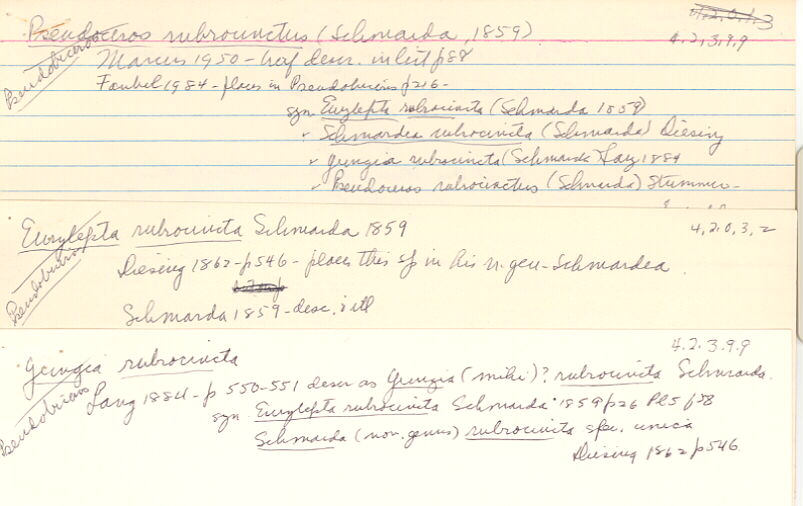 Pseudoceros rubrocinctus (Schmarda, 1859)
4.2.3.9.9
Pseudobiceros
Marcus 1950 - brf descr. in lit p88
Faubel 1984 - places in Pseudobiceros p216 -
syn Eurylepta rubrocincta (Schmarda 1859)
" Schmardea rubrocincta (Schmarda) Diesing
" Yungia rubrocincta (Schmarda) Lang 1884
" Pseudoceros rubrocinctus (Schmarda) Stummer-
Eurylepta rubrocincta Schmarda 1859
4.2.0.3.2
Pseudobiceros
Diesing 1862 - p546 - places this sp in his n.gen - Schmardea
Schmarda 1859 - desc. & ill
Yungia rubrocincta
4.2.3.9.9
Pseudobiceros
Lang 1884 - p 550-551 descr as Yungia (mihi)? rubrocincta Schmarda.
syn Eurylepta rubrocincta Schmarda 1859 p26 Pl 5 p58
Schmarda (nov. genus) rubrocincta spec. unica
Diesing 1862 p546